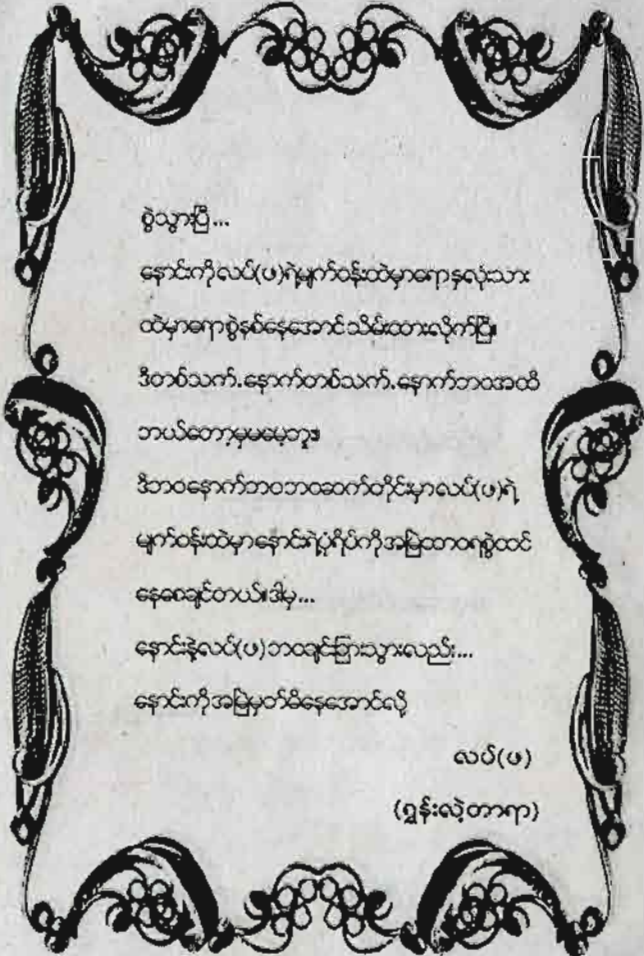 စွဲသွားပြီ...
နောင်းကိုလပ်(ဖ)ရဲ့မျက်ဝန်းထဲမှာရောနှလုံးသား
ထဲမှာရောစွဲနစ်နေအောင်သိမ်းထားလိုက်ပြီ။
ဒီတစ်သက်၊နောက်တစ်သက်၊နောက်ဘဝအထိ
ဘယ်တော့မှမမေ့ဘူး။
ဒီဘဝနောက်ဘဝဘဝဆက်တိုင်းမှာလပ်(ဖ)ရဲ့
မျက်ဝန်းထဲမှာနောင်းရဲ့ပုံရိပ်ကိုအမြဲထာဝရစွဲထင်
နေစေချင်တယ်။ဒါမှ...
နောင်းနဲ့လပ်(ဖ)ဘဝချင်းခြားသွားလည်း...
နောင်းကိုအမြဲမှတ်မိနေအောင်လို့
လပ်(ဖ)
(ရွှန်းလဲ့တာရာ)